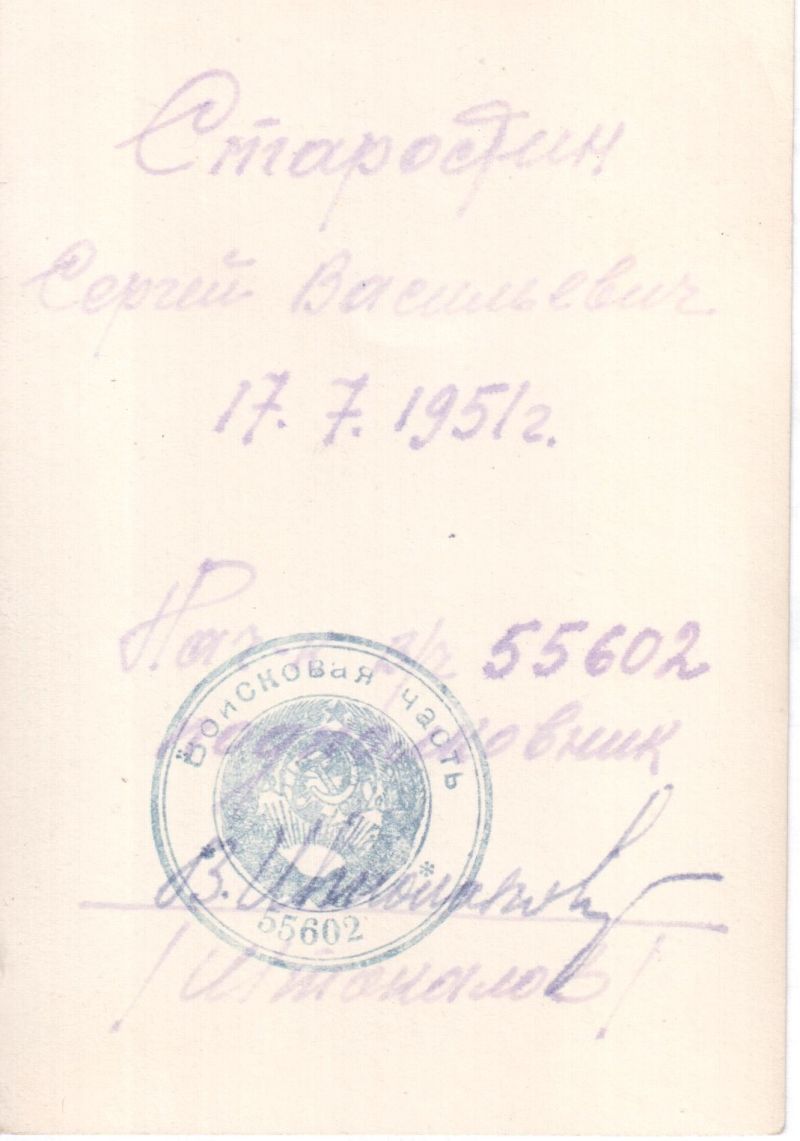 Старостин
Сергей Васильевич
17. 7. 1951г.
в/ч 55602
подполковник
Войсковая часть
* *
55602